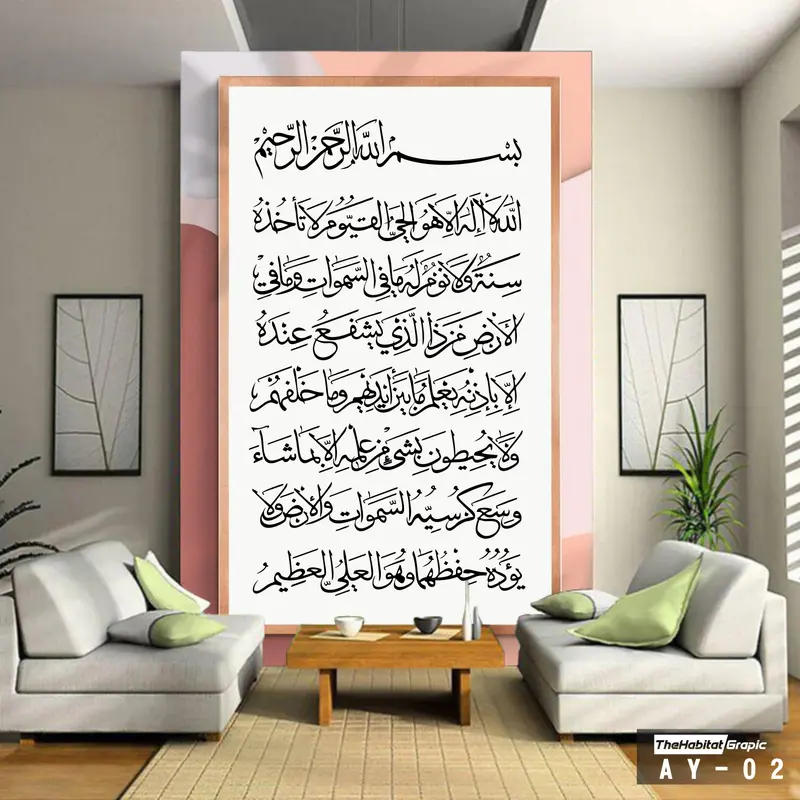 بسم الله الرحمن الرحيم
الله لا إله إلا هو الحي القيوم لا تأخذه
سنة ولا نوم له ما في السموات وما في
الأرض من ذا الذي يشفع عنده
إلا بإذنه يعلم ما بين أيديهم وما خلفهم
ولا يحيطون بشيء من علمه إلا بما شاء
وسع كرسيه السموات والأرض ولا
يؤده حفظهما وهو العلي العظيم
TheHabitat Grapic
AY-02